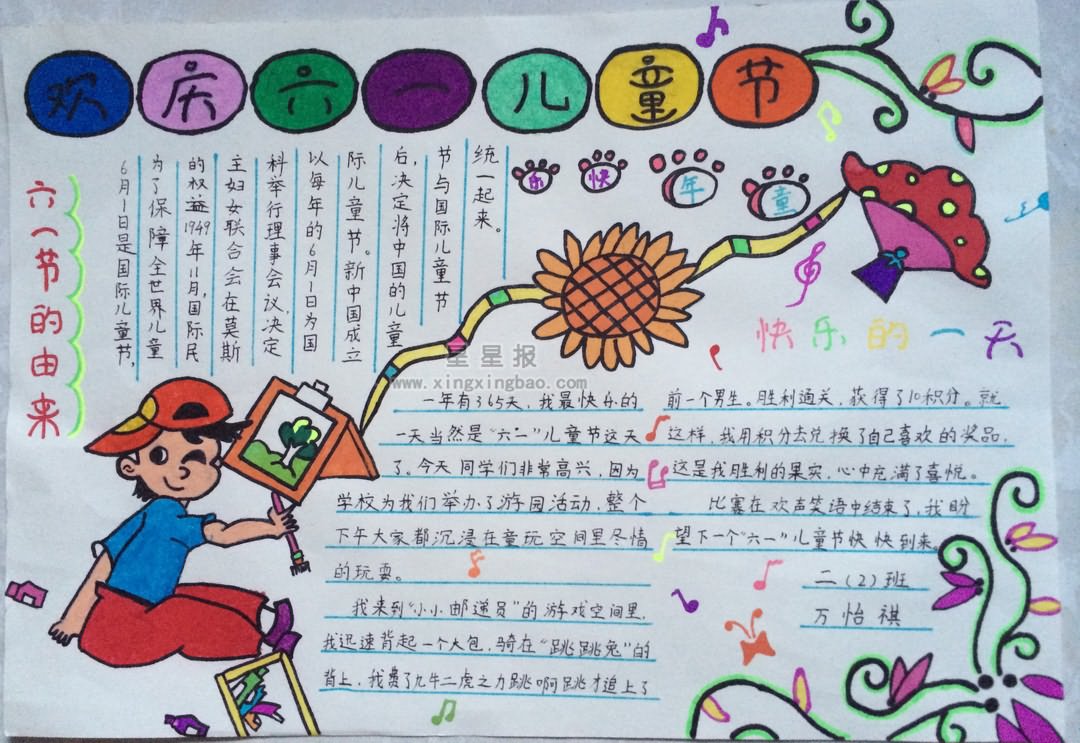 欢庆六一儿童节
六一节的由来
6月1日是国际儿童节,
为了保障全世界儿童
的权益1949年11月,国际民
主妇女联合会在莫斯
科举行理事会议,决定
以每年的6月1日为国
际儿童节。新中国成立
后,决定将中国的儿童
节与国际儿童节
统一起来。
童年快乐
快乐的一天
一年有365天,我最快乐的
一天当然是“六一”儿童节这天
了。今天同学们非常高兴,因为
学校为我们举办了游园活动,整个
下午大家都沉浸在童玩空间里尽情
的玩耍。
我来到“小小邮递员”的游戏空间里,
我迅速背起一个大包,骑在“跳跳兔”的
背上,我费了九牛二虎之力跳啊跳才追上了
前一个男生。胜利通关,获得了10积分。就
这样,我用积分去兑换了自己喜欢的奖品,
这是我胜利的果实,心中充满了喜悦。
比赛在欢声笑语中结束了,我盼
望下一个“六一”儿童节快快到来。
二(2)班
万怡祺
星星报
www.xingxingbao.com